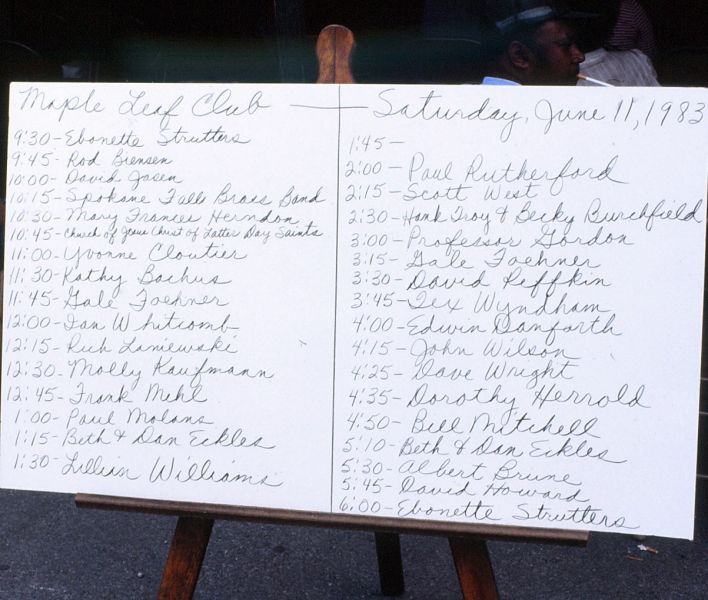 Maple Leaf Club — Saturday, June 11, 1983
9:30 - Ebonette Strutters
9:45 - Rod Biensen
10:00 - David Jasen
10:15 - Spokane Falls Brass Band
10:30 - Mary Frances Herndon
10:45 - Church of Jesus Christ of Latter Day Saints
11:00 - Yvonne Cloutier
11:30 - Kathy Bachus
11:45 - Gale Foehner
12:00 - Ian Whitcomb
12:15 - Rich Laniewski
12:30 - Molly Kaufmann
12:45 - Frank Mehl
1:00 - Paul Molans
1:15 - Beth & Dan Eckles
1:30 - Lillian Williams
1:45 -
2:00 - Paul Rutherford
2:15 - Scott West
2:30 - Hank Troy & Becky Burchfield
3:00 - Professor Gordon
3:15 - Gale Foehner
3:30 - David Reffkin
3:45 - Tex Wyndham
4:00 - Edwin Danforth
4:15 - John Wilson
4:25 - Dave Wright
4:35 - Dorothy Herrold
4:50 - Bill Mitchell
5:10 - Beth & Dan Eckles
5:30 - Albert Brune
5:45 - David Howard
6:00 - Ebonette Strutters